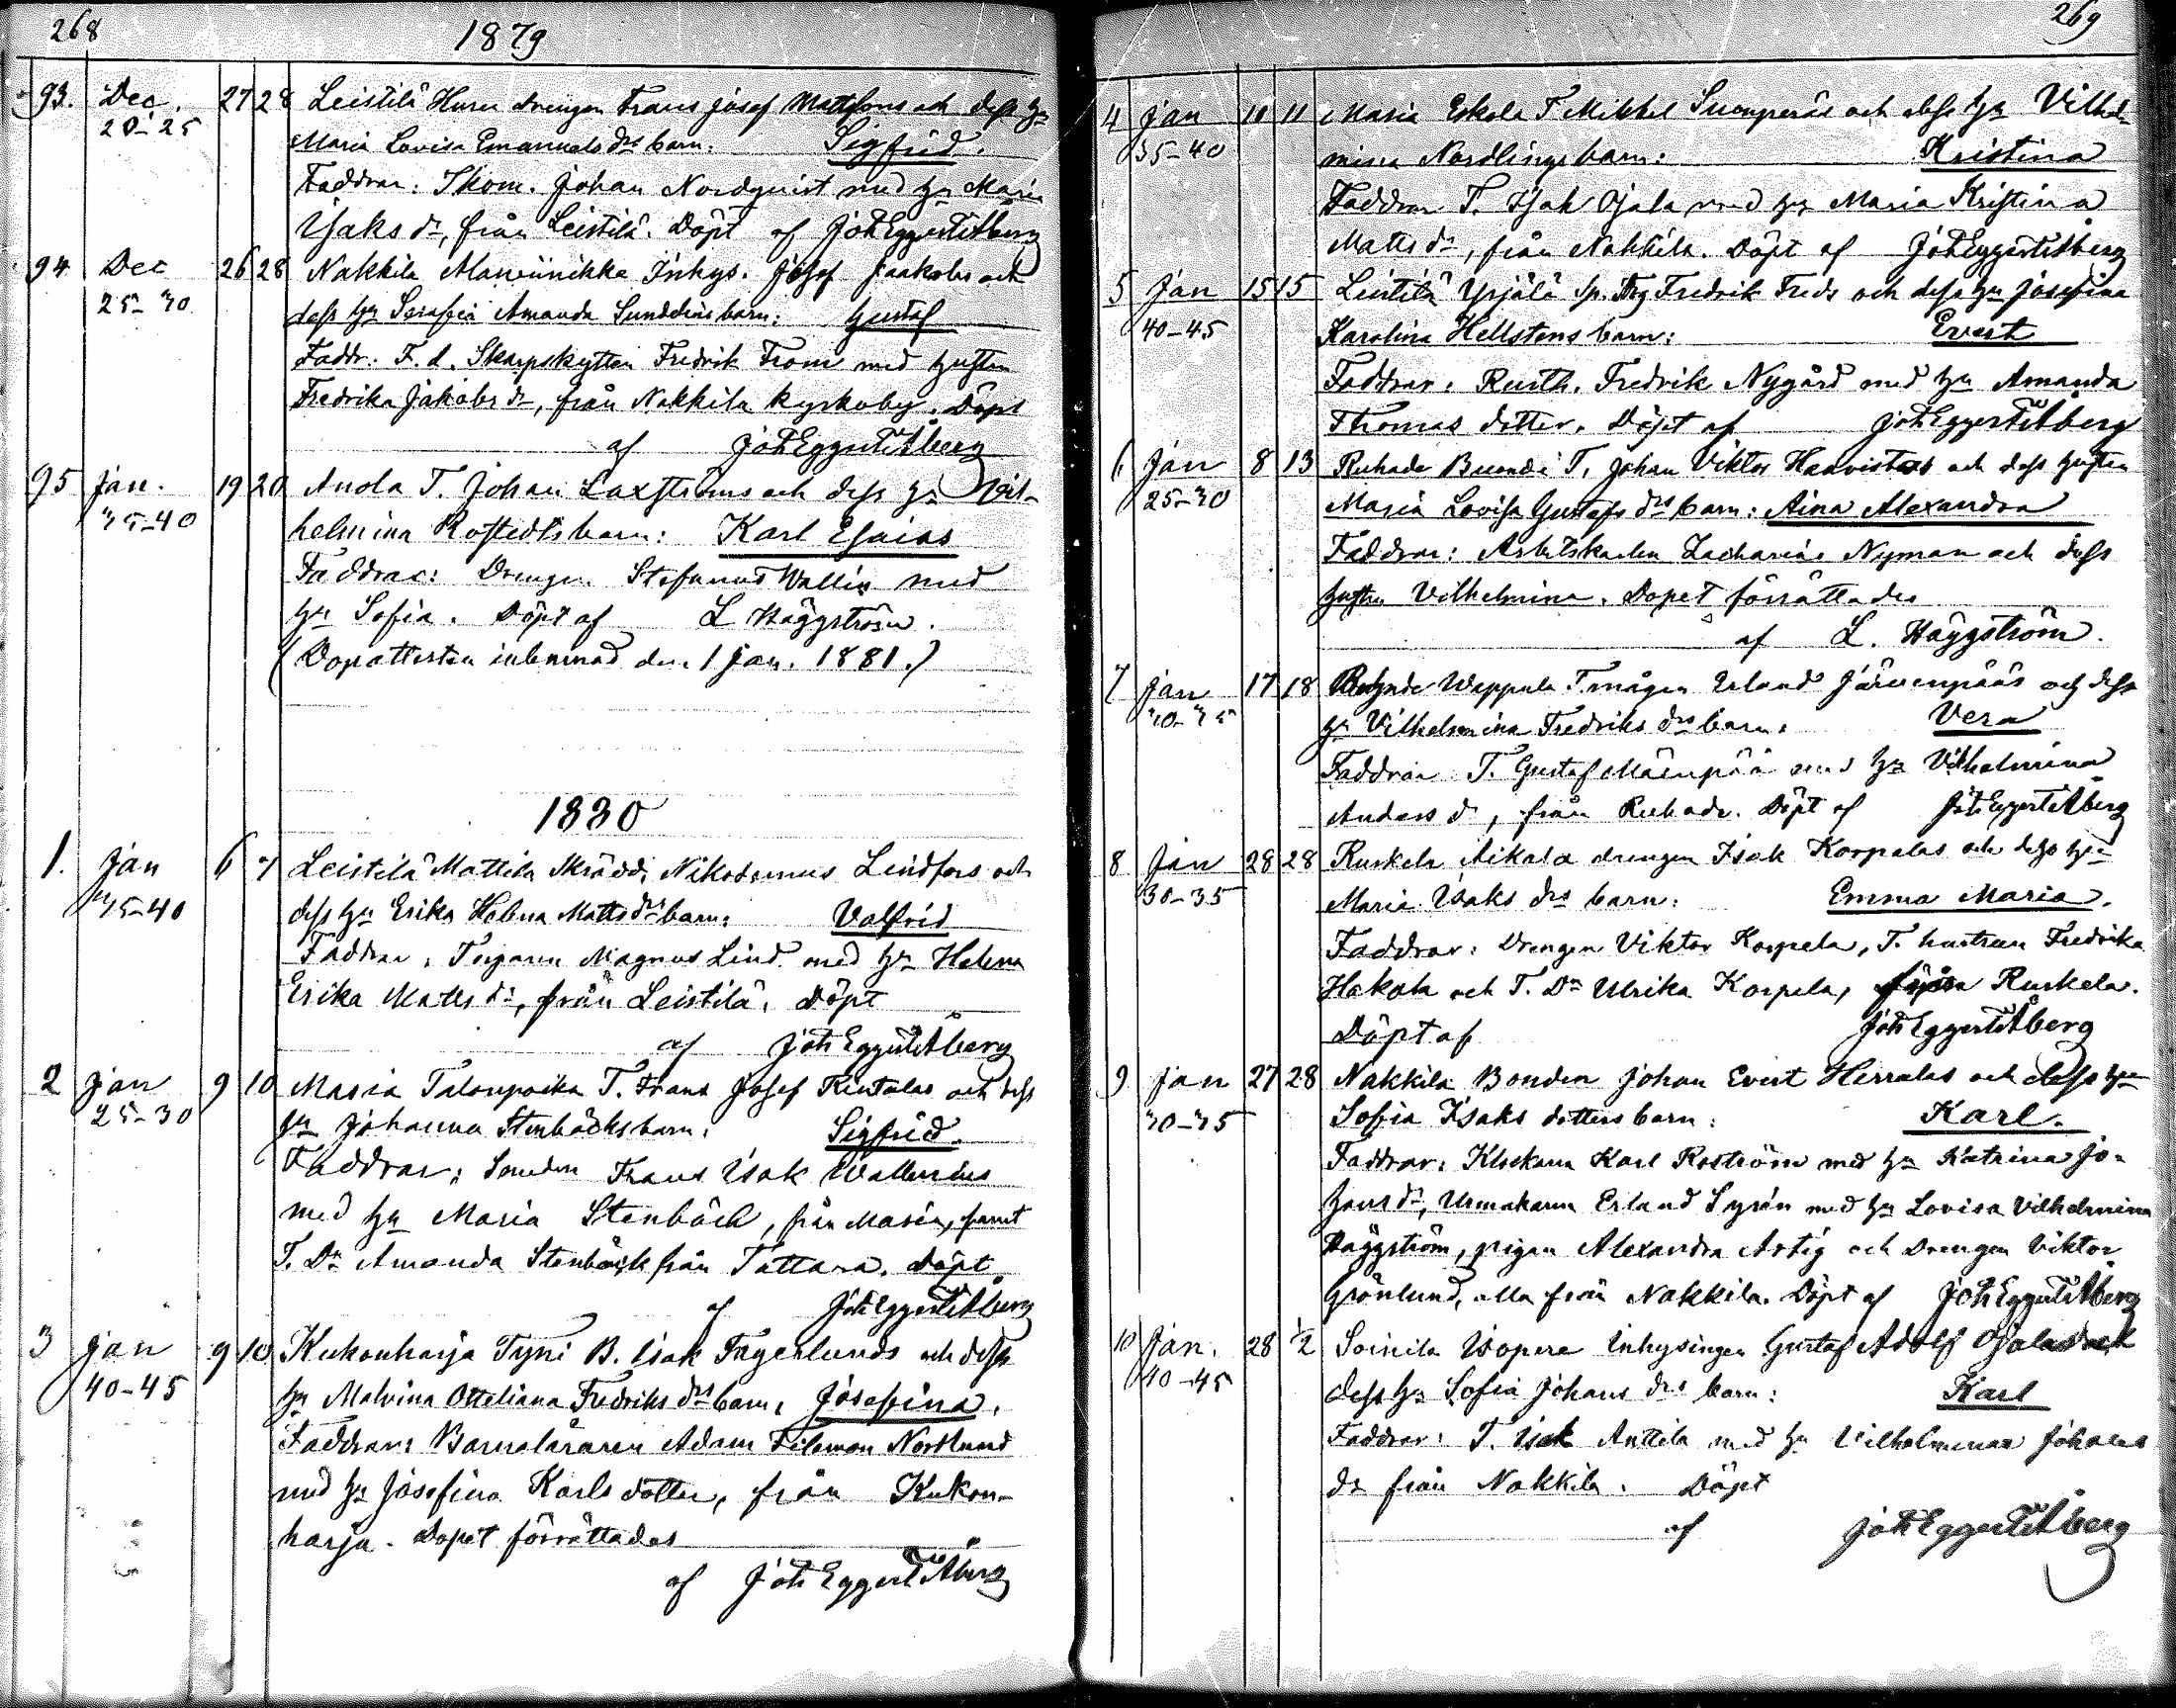 268
1879
93. Dec. 27 28 Leistilä Huru drengen Frans Josef Mattsons och dess hu
20-25 Maria Lovisa Emanuels drs barn: Sigfrid.
Faddrar: Skom. Johan Nordqvist med hu Maria
Isaks dr, från Leistilä. Döpt af Joh Eggert Åberg
94 Dec 26 28 Nakkila Inhys. Josef Jaakolas och
25-30 dess hu Serafia Amanda Sunddins barn: Gustaf
Faddr: F. d. Skarpskytten Fredrik From med hustrun
Fredrika Jakobs dr, från Nakkila kyrkoby. Döpt
af Joh Eggert Åberg
95 Jan. 19 20 Anola T. Johan Laxströms och dess hu Vil-
35-40 helmina Rostedts barn: Karl Esaias
Faddrar: Drengen Stefanus Wallin med
hu Sofia. Döpt af L Häggström.
(Dopattesten inlemnad den 1 Jan. 1881.)
1880
1. Jan 6 7 Leistilä Mattila Skrädd. Nikodemus Lindfors och
35-40 dess hu Erika Helena Matts drs barn: Valfrid
Faddrar: Magnus Lind med hu Helena
Erika Matts dr, från Leistilä. Döpt
af Joh Eggert Åberg
2 Jan 9 10 Masia Talonpoika T. Frans Josef Kintalas och dess
25-30 hu Johanna Stenbäcks barn: Sigfrid.
Faddrar: Smeden Frans Isak Wallenius
med hu Maria Stenbäck, från Masia, samt
T. Dr Amanda Stenbäck från Tattara. Döpt
af Joh Eggert Åberg
3 Jan 9 10 Kukonharja Tyni B. Isak Fagerlunds och dess
40-45 hu Malvina Otteliana Fredriks drs barn, Josefina.
Faddrar: Barnaläraren Adam Filemon Nordlund
med hu Josefina Karls dotter, från Kukon-
harja. Dopet förrättades
af Joh Eggert Åberg
269
4 Jan 10 11 Masia Eskola T Mikkel Suonperäs och dess hu Vilhel-
35-40 mina Nordlings barn: Kristina
Faddrar T. Isak Ojala med hu Maria Kristina
Matts dr, från Nakkila. Döpt af Joh Eggert Åberg
5 Jan 15 15 Leistilä Yrjälä Fredrik Freds och dess hu Josefina
40-45 Karolina Hellstens barn: Evert
Faddrar: Rusth. Fredrik Nygård med hu Amanda
Thomas dotter. Döpt af Joh Eggert Åberg
6 Jan 8 13 Ruhade Buonde T. Johan Viktor Haavistos och dess hustru
25-30 Maria Lovisa Gustafs drs barn: Aina Alexandra
Faddrar: Arbetskarlen Zacharias Nyman och dess
hustru Vilhelmina. Dopet förrättades
af L. Häggström.
7 Jan 17 18 Wappula T mågen Erlands Järvenpääs och dess
30-35 hu Vilhelmina Fredriks drs barn: Vera
Faddrar T. Gustaf Mäenpää med hu Vilhelmina
Anders dr, från Ruhade. Döpt af Joh Eggert Åberg
8 Jan 28 28 Ruskela Aikala drengen Isak Korpelas och dess hu
30-35 Maria Isaks drs barn: Emma Maria.
Faddrar: Drengen Viktor Korpela, T. hustrun Fredrika
Hakola och T. Dr Ulrika Korpela, från Ruskela.
Döpt af Joh Eggert Åberg
9 Jan 27 28 Nakkila Bonden Johan Evert Herralas och dess hu
30-35 Sofia Isaks dotters barn: Karl.
Faddrar: Klockaren Karl Roström med hu Katrina Jo-
hans dr, Urmakaren Erland Syrén med hu Lovisa Vilhelmina
Häggström, pigan Alexandra Artig och Drengen Viktor
Grönlund, alla från Nakkila. Döpt af Joh Eggert Åberg
10 Jan. 28 1/2 Soinila Isopere Inhysingen Gustaf Adolf Ojalas och
40-45 dess hu Sofia Johans drs barn: Karl
Faddrar: T. Isak Anttila med hu Vilhelmina Johans
dr från Nakkila. Döpt
af Joh Eggert Åberg